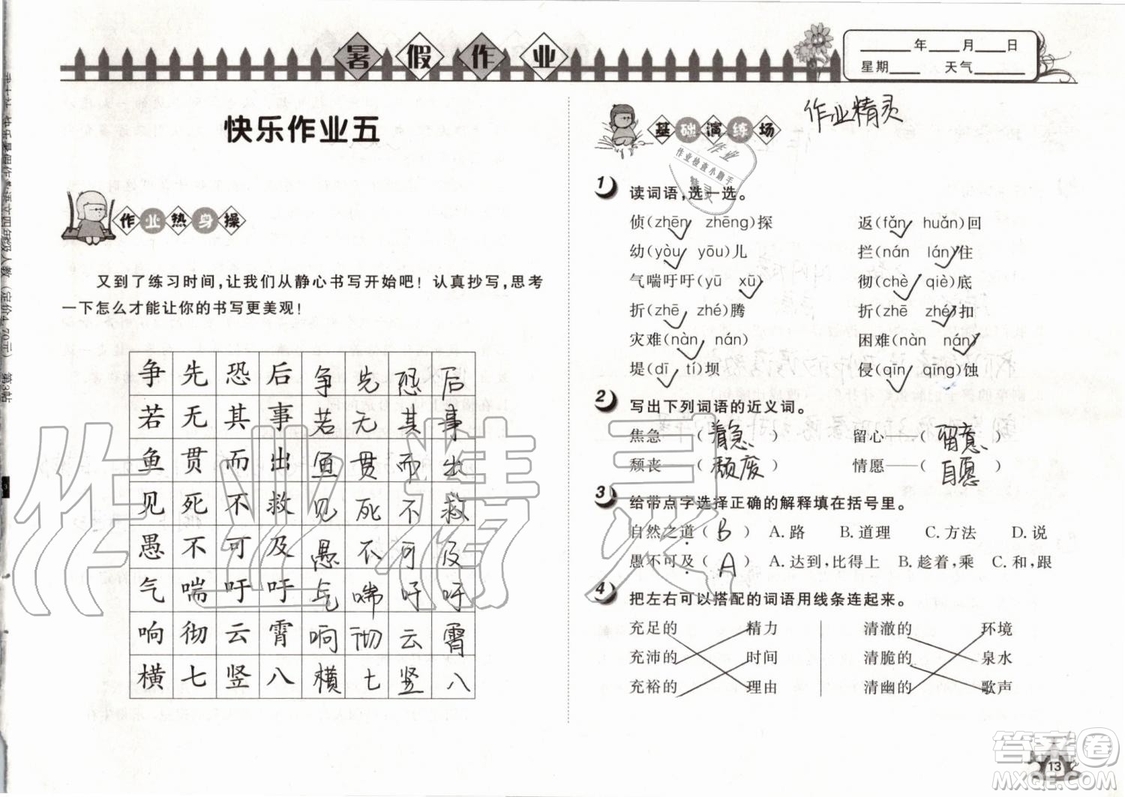 暑假作业
____年____月____日
星期____ 天气____
快乐作业五
作业热身操
又到了练习时间,让我们从静心书写开始吧!认真抄写,思考
一下怎么才能让你的书写更美观!
争先恐后争先恐后
若无其事若无其事
鱼贯而出鱼贯而出
见死不救见死不救
愚不可及愚不可及
气喘吁吁气喘吁吁
响彻云霄响彻云霄
横七竖八横七竖八
基础演练场
作业精灵
作业
作业检查小助手
精灵
1 读词语,选一选。
侦(zhēn zhēng)探 返(fǎn huǎn)回
幼(yòu yōu)儿 拦(nán lán)住
气喘吁吁(yū xū) 彻(chè qiè)底
折(zhē zhé)腾 折(zhē zhé)扣
灾难(nàn nán) 困难(nàn nán)
堤(dī tí)坝 侵(qīn qīng)蚀
2 写出下列词语的近义词。
焦急——( 着急 ) 留心——( 留意 )
颓丧——( 颓废 ) 情愿——( 自愿 )
3 给带点字选择正确的解释填在括号里。
自然之道( B ) A.路 B.道理 C.方法 D.说
愚不可及( A ) A.达到,比得上 B.趁着,乘 C.和,跟
4 把左右可以搭配的词语用线条连起来。
充足的 精力 清澈的 环境
充沛的 时间 清脆的 泉水
充裕的 理由 清幽的 歌声
作业精灵
13
答案圈
MXQE.COM